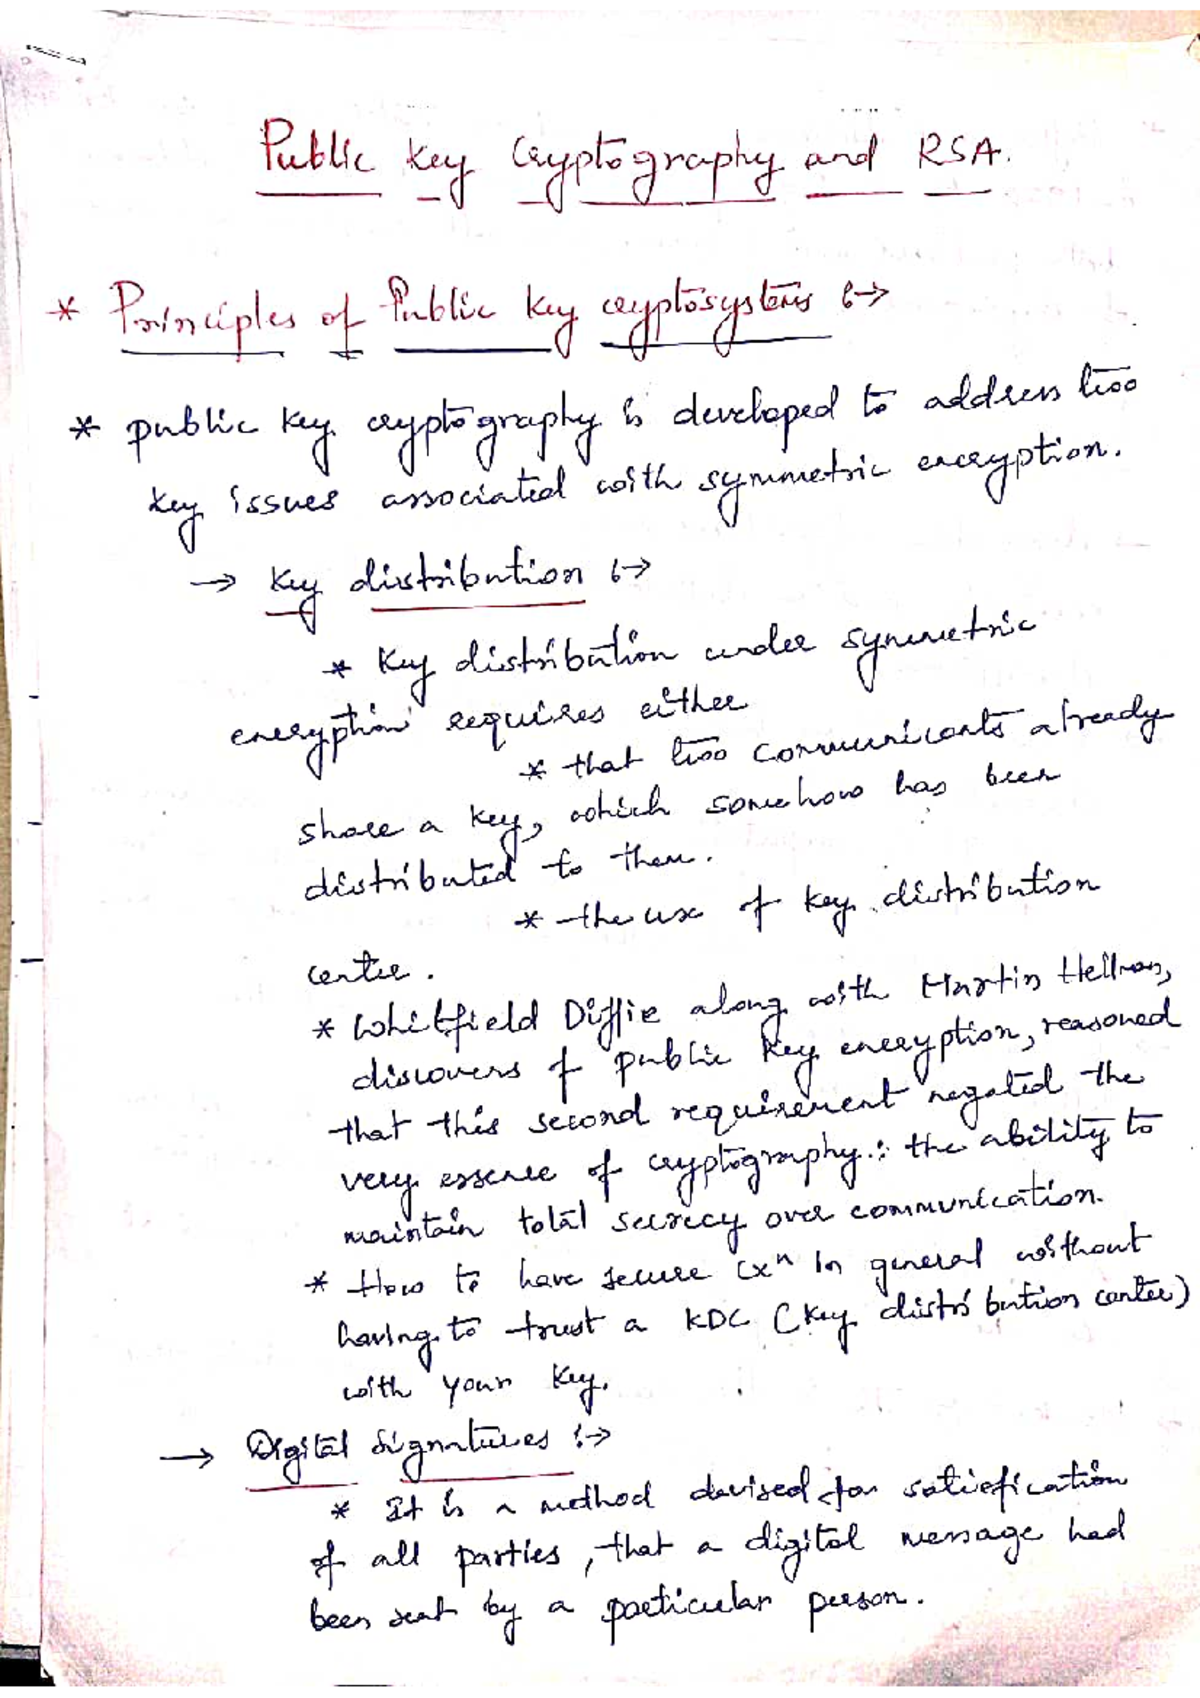 Public Key Cryptography and RSA.
* Principles of Public Key cryptosystems :→
* public key cryptography is developed to address two
key issues associated with symmetric encryption.
→ Key distribution :→
* Key distribution under symmetric
encryption requires either
* that two communicants already
share a key, which somehow has been
distributed to them.
* the use of key distribution
centre.
* Whitfield Diffie along with Martin Hellman,
discovers of public key encryption, reasoned
that this second requirement negated the
very essence of cryptography: the ability to
maintain total secrecy over communication.
* How to have secure cxⁿ in general without
having to trust a KDC (Key distribution center)
with your key.
→ Digital Signatures :→
* It is a method devised for satisfication
of all parties, that a digital message had
been sent by a particular person.